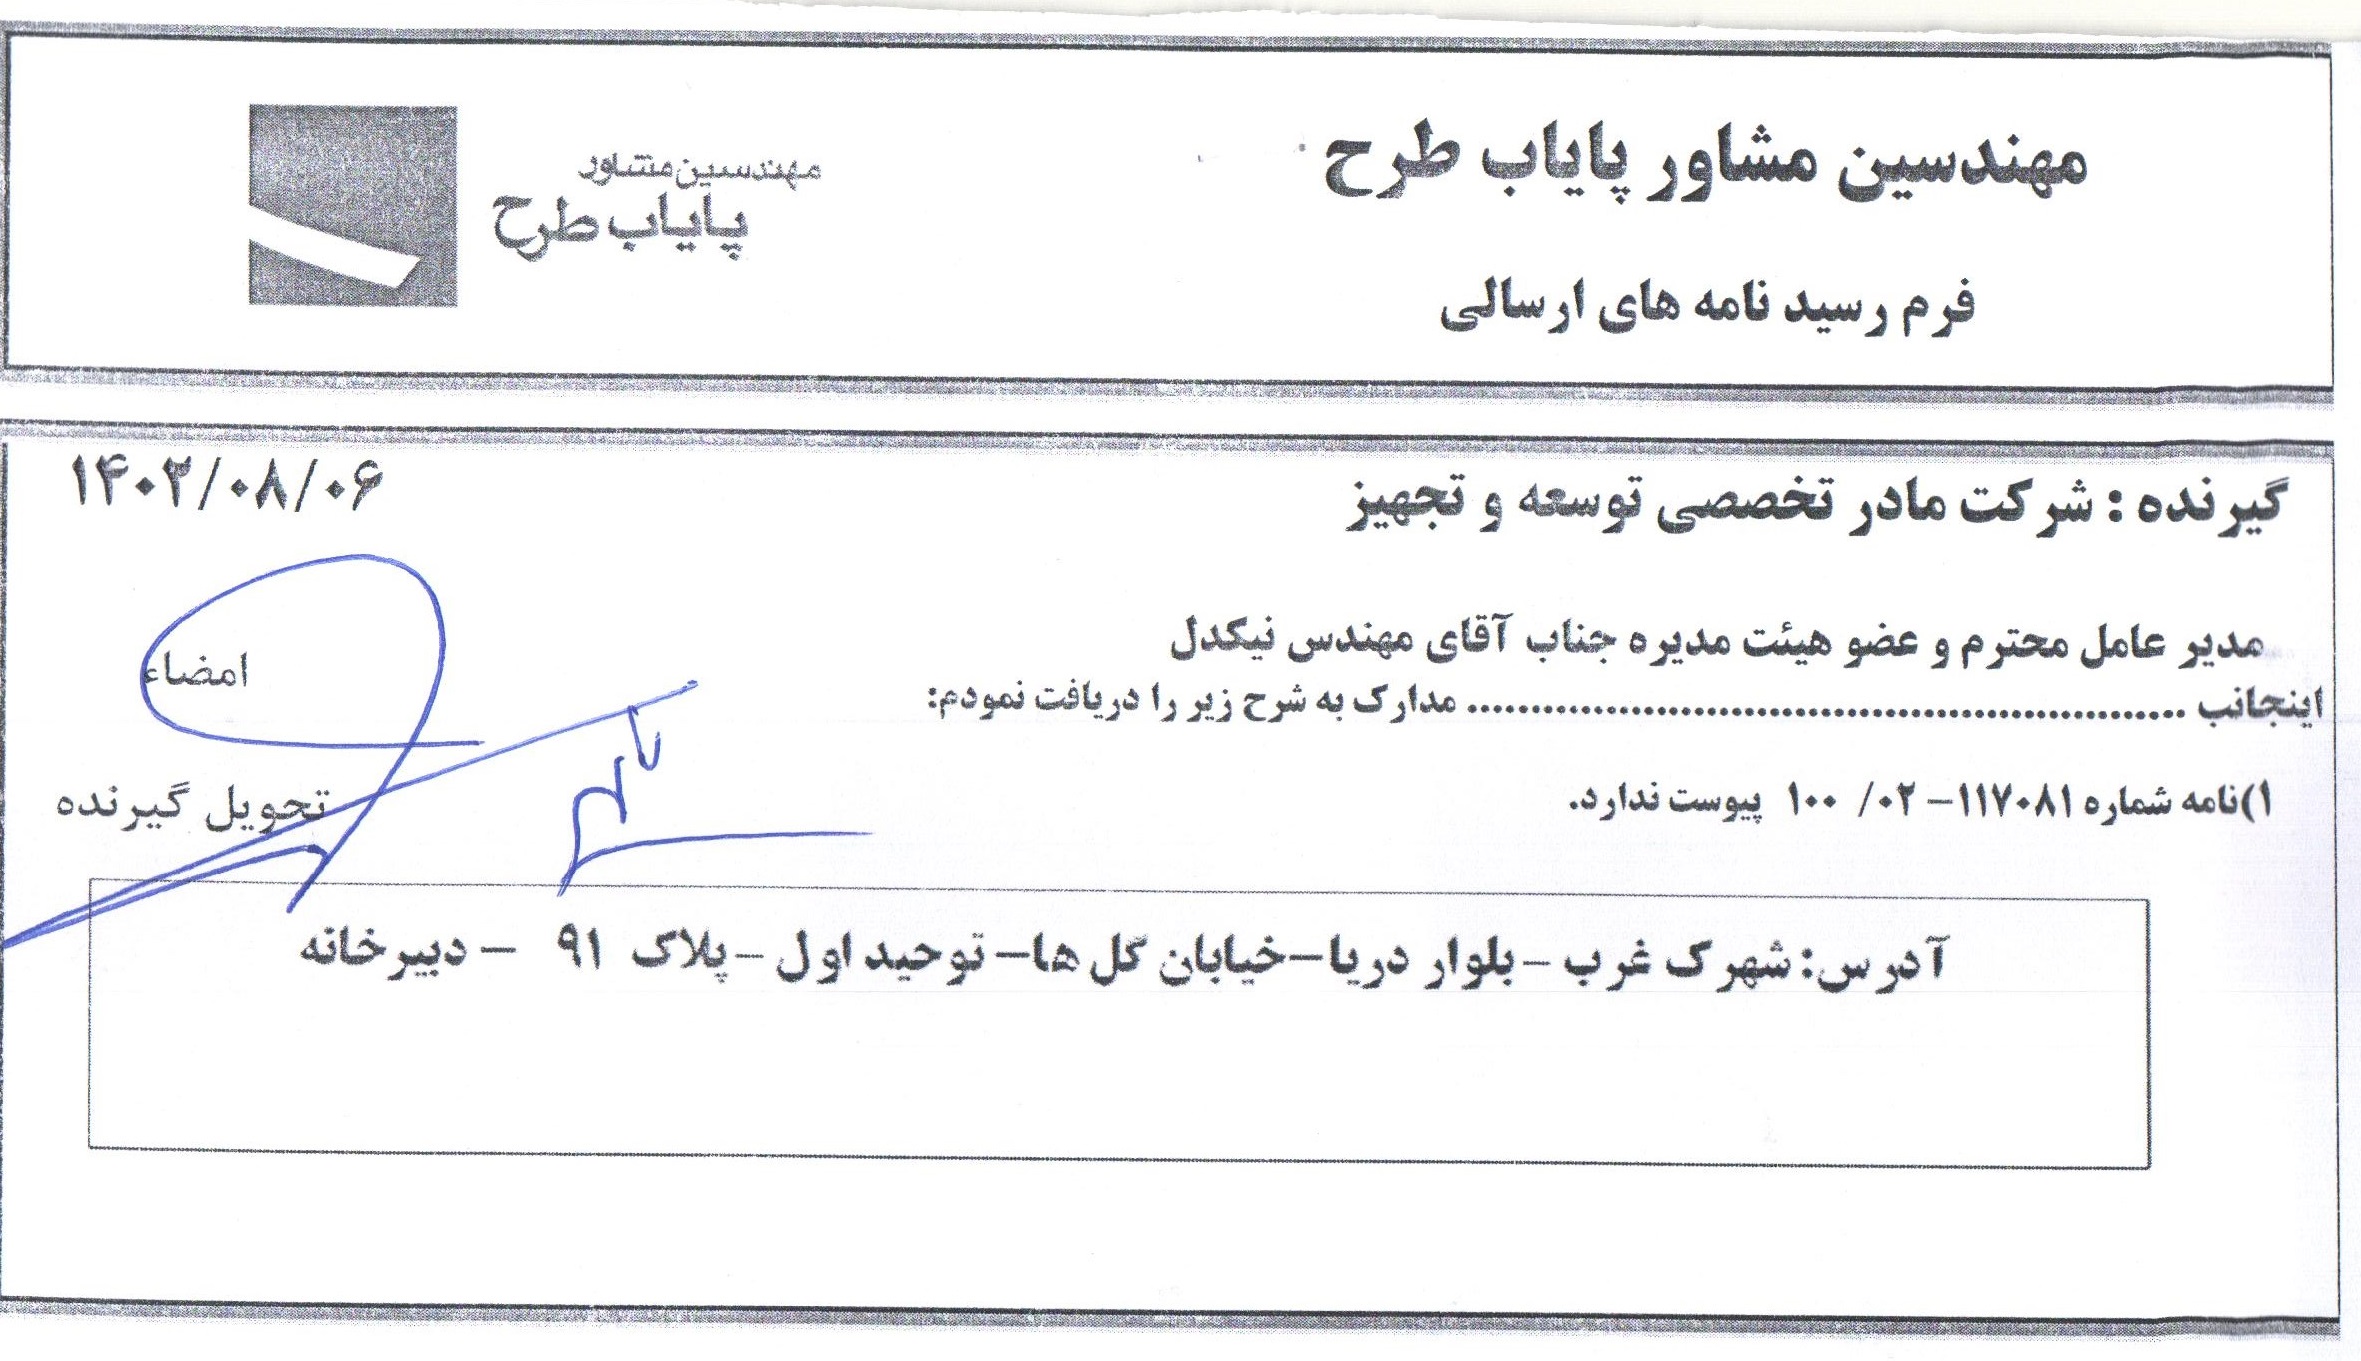 مهندسین مشاور پایاب طرح
مهندسین مشاور
پایاب طرح
فرم رسید نامه های ارسالی
گیرنده : شرکت مادر تخصصی توسعه و تجهیز
۱۴۰۲/۰۸/۰۶
مدیر عامل محترم و عضو هیئت مدیره جناب آقای مهندس نیکدل
امضاء
اینجانب ........................................................ مدارک به شرح زیر را دریافت نمودم:
۱)نامه شماره ۱۱۷۰۸۱– ۰۲/ ۱۰۰ پیوست ندارد.
تحویل گیرنده
آدرس: شهرک غرب –بلوار دریا–خیابان گل ها– توحید اول –پلاک ۹۱ – دبیرخانه